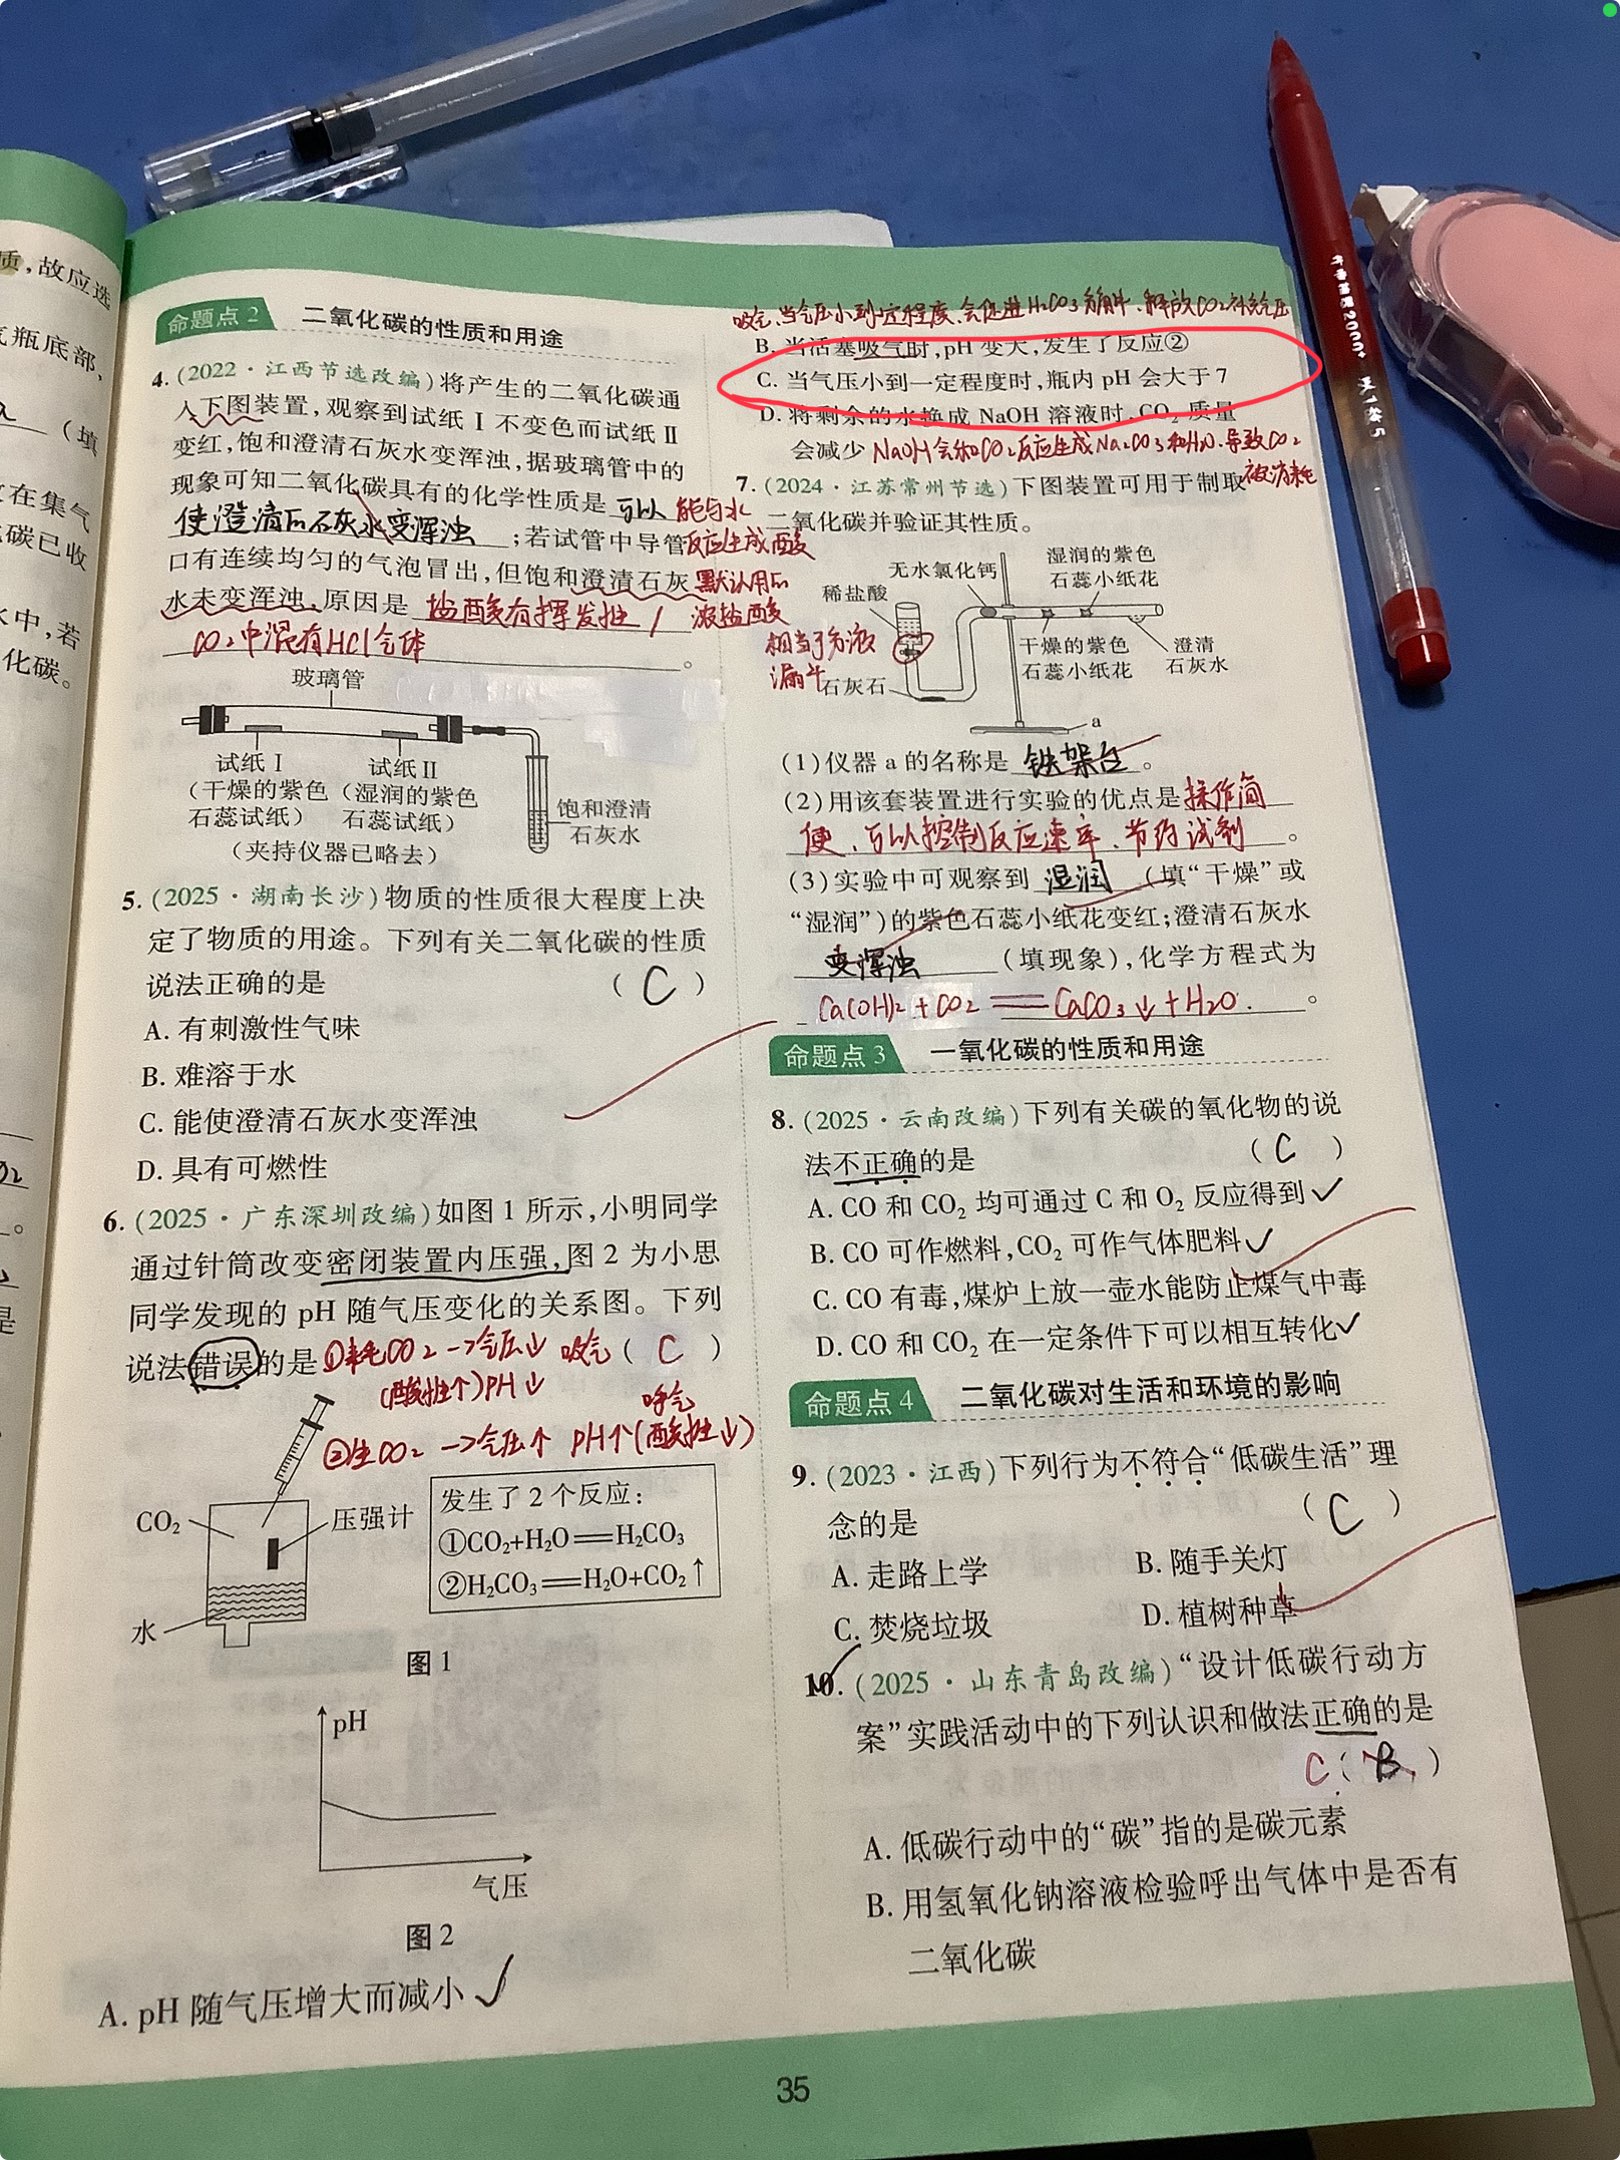 质,故应选
气瓶底部,
(填
在集气
碳已收
水中,若
化碳。
命题点2 二氧化碳的性质和用途
4. (2022·江西节选改编)将产生的二氧化碳通
入下图装置,观察到试纸Ⅰ不变色而试纸Ⅱ
变红,饱和澄清石灰水变浑浊,据玻璃管中的
现象可知二氧化碳具有的化学性质是 可以 能与水
使澄清石灰水变浑浊 ;若试管中导管 反应生成酸
口有连续均匀的气泡冒出,但饱和澄清石灰 默认用
水未变浑浊,原因是 盐酸有挥发性 浓盐酸
CO2中混有HCl气体 。
玻璃管
试纸Ⅰ 试纸Ⅱ
(干燥的紫色 (湿润的紫色
石蕊试纸) 石蕊试纸)
饱和澄清
石灰水
(夹持仪器已略去)
5. (2025·湖南长沙)物质的性质很大程度上决
定了物质的用途。下列有关二氧化碳的性质
说法正确的是 ( C )
A. 有刺激性气味
B. 难溶于水
C. 能使澄清石灰水变浑浊
D. 具有可燃性
6. (2025·广东深圳改编)如图1所示,小明同学
通过针筒改变密闭装置内压强,图2为小思
同学发现的pH随气压变化的关系图。下列
说法错误的是 ①耗CO2→气压↓ 吸气 ( C )
(酸性↑)pH↓ 呼气
②生CO2→气压↑ pH↑(酸性↓)
CO₂
压强计
水
发生了2个反应:
①CO₂+H₂O══H₂CO₃
②H₂CO₃══H₂O+CO₂↑
图1
pH
气压
图2
A. pH随气压增大而减小 ✓
吸气,当气压小到一定程度,会促进H2CO3分解,释放CO2补充气压
B. 当活塞吸气时,pH变大,发生了反应②
C. 当气压小到一定程度时,瓶内pH会大于7
D. 将剩余的水换成NaOH溶液时,CO₂质量
会减少 NaOH会和CO2反应生成Na2CO3和H2O,导致CO2
被消耗
7. (2024·江苏常州节选)下图装置可用于制取
二氧化碳并验证其性质。
无水氯化钙
湿润的紫色
石蕊小纸花
稀盐酸
相当于分液
漏斗
石灰石
干燥的紫色
石蕊小纸花
澄清
石灰水
a
(1)仪器a的名称是 铁架台 。
(2)用该套装置进行实验的优点是 操作简
便、可以控制反应速率、节约试剂 。
(3)实验中可观察到 湿润 (填“干燥”或
“湿润”)的紫色石蕊小纸花变红;澄清石灰水
变浑浊 (填现象),化学方程式为
Ca(OH)2+CO2══CaCO3↓+H2O. 。
命题点3 一氧化碳的性质和用途
8. (2025·云南改编)下列有关碳的氧化物的说
法不正确的是 ( C )
A. CO和CO₂均可通过C和O₂反应得到 ✓
B. CO可作燃料,CO₂可作气体肥料 ✓
C. CO有毒,煤炉上放一壶水能防止煤气中毒
D. CO和CO₂在一定条件下可以相互转化 ✓
命题点4 二氧化碳对生活和环境的影响
9. (2023·江西)下列行为不符合“低碳生活”理
念的是 ( C )
A. 走路上学 B. 随手关灯
C. 焚烧垃圾 D. 植树种草
10. (2025·山东青岛改编)“设计低碳行动方
案”实践活动中的下列认识和做法正确的是
C ( B )
A. 低碳行动中的“碳”指的是碳元素
B. 用氢氧化钠溶液检验呼出气体中是否有
二氧化碳
35